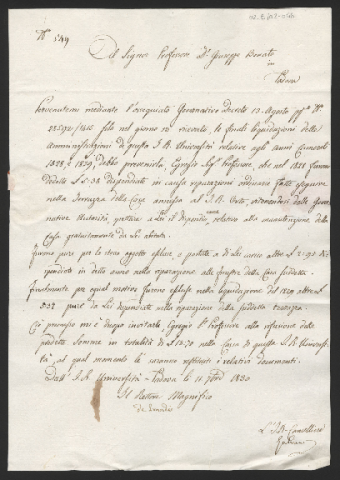 N° 549
Al Signor Professore D.r Giuseppe Bonato
in
Padova
Pervenutemi mediante l'ossequiato Governativo Decreto 13 Agosto pp.° N°
solo nel giorno 10 corrente, le finali liquidazioni delle
Amministrazioni di questa I. R. Università relative agli anni Camerali
1828, e 1829, debbo prevenirla, Egregio Sig.r Professore, che nel 1828 furono
dedotte L. 5:38 dispendiate in causa riparazioni ordinarie fatte eseguire
nella terrazza della Casa annessa al I. R. Orto, ritenendosi dalla Gover-
nativa Autorità, spettare a Lei il dispendio relativo alla manutenzione della
Casa gratuitamente da Lei abitata.
Furono pure per lo stesso oggetto escluse, e portate a di Lei carico altre L. 2:95 di-
spendiate in detto anno nella riparazione alle finestre della Casa suddetta.
Finalmente per egual motivo furono escluse nella liquidazione del 1829 altre L.
5:37 pure da Lei dispendiate nella riparazione della suddetta terrazza.
Ciò premesso mi è d'uopo invitarla, Egregio S.r Professore alla rifusione delle
predette somme in totalità di L. 13:70 nella Cassa di questa I. R. Universi-
tà, al qual momento le saranno restituiti i relativi documenti.
Dall' I. R. Università - Padova li 11 7bre 1830
Il Rettore Magnifico
L' I. R. Cancelliere